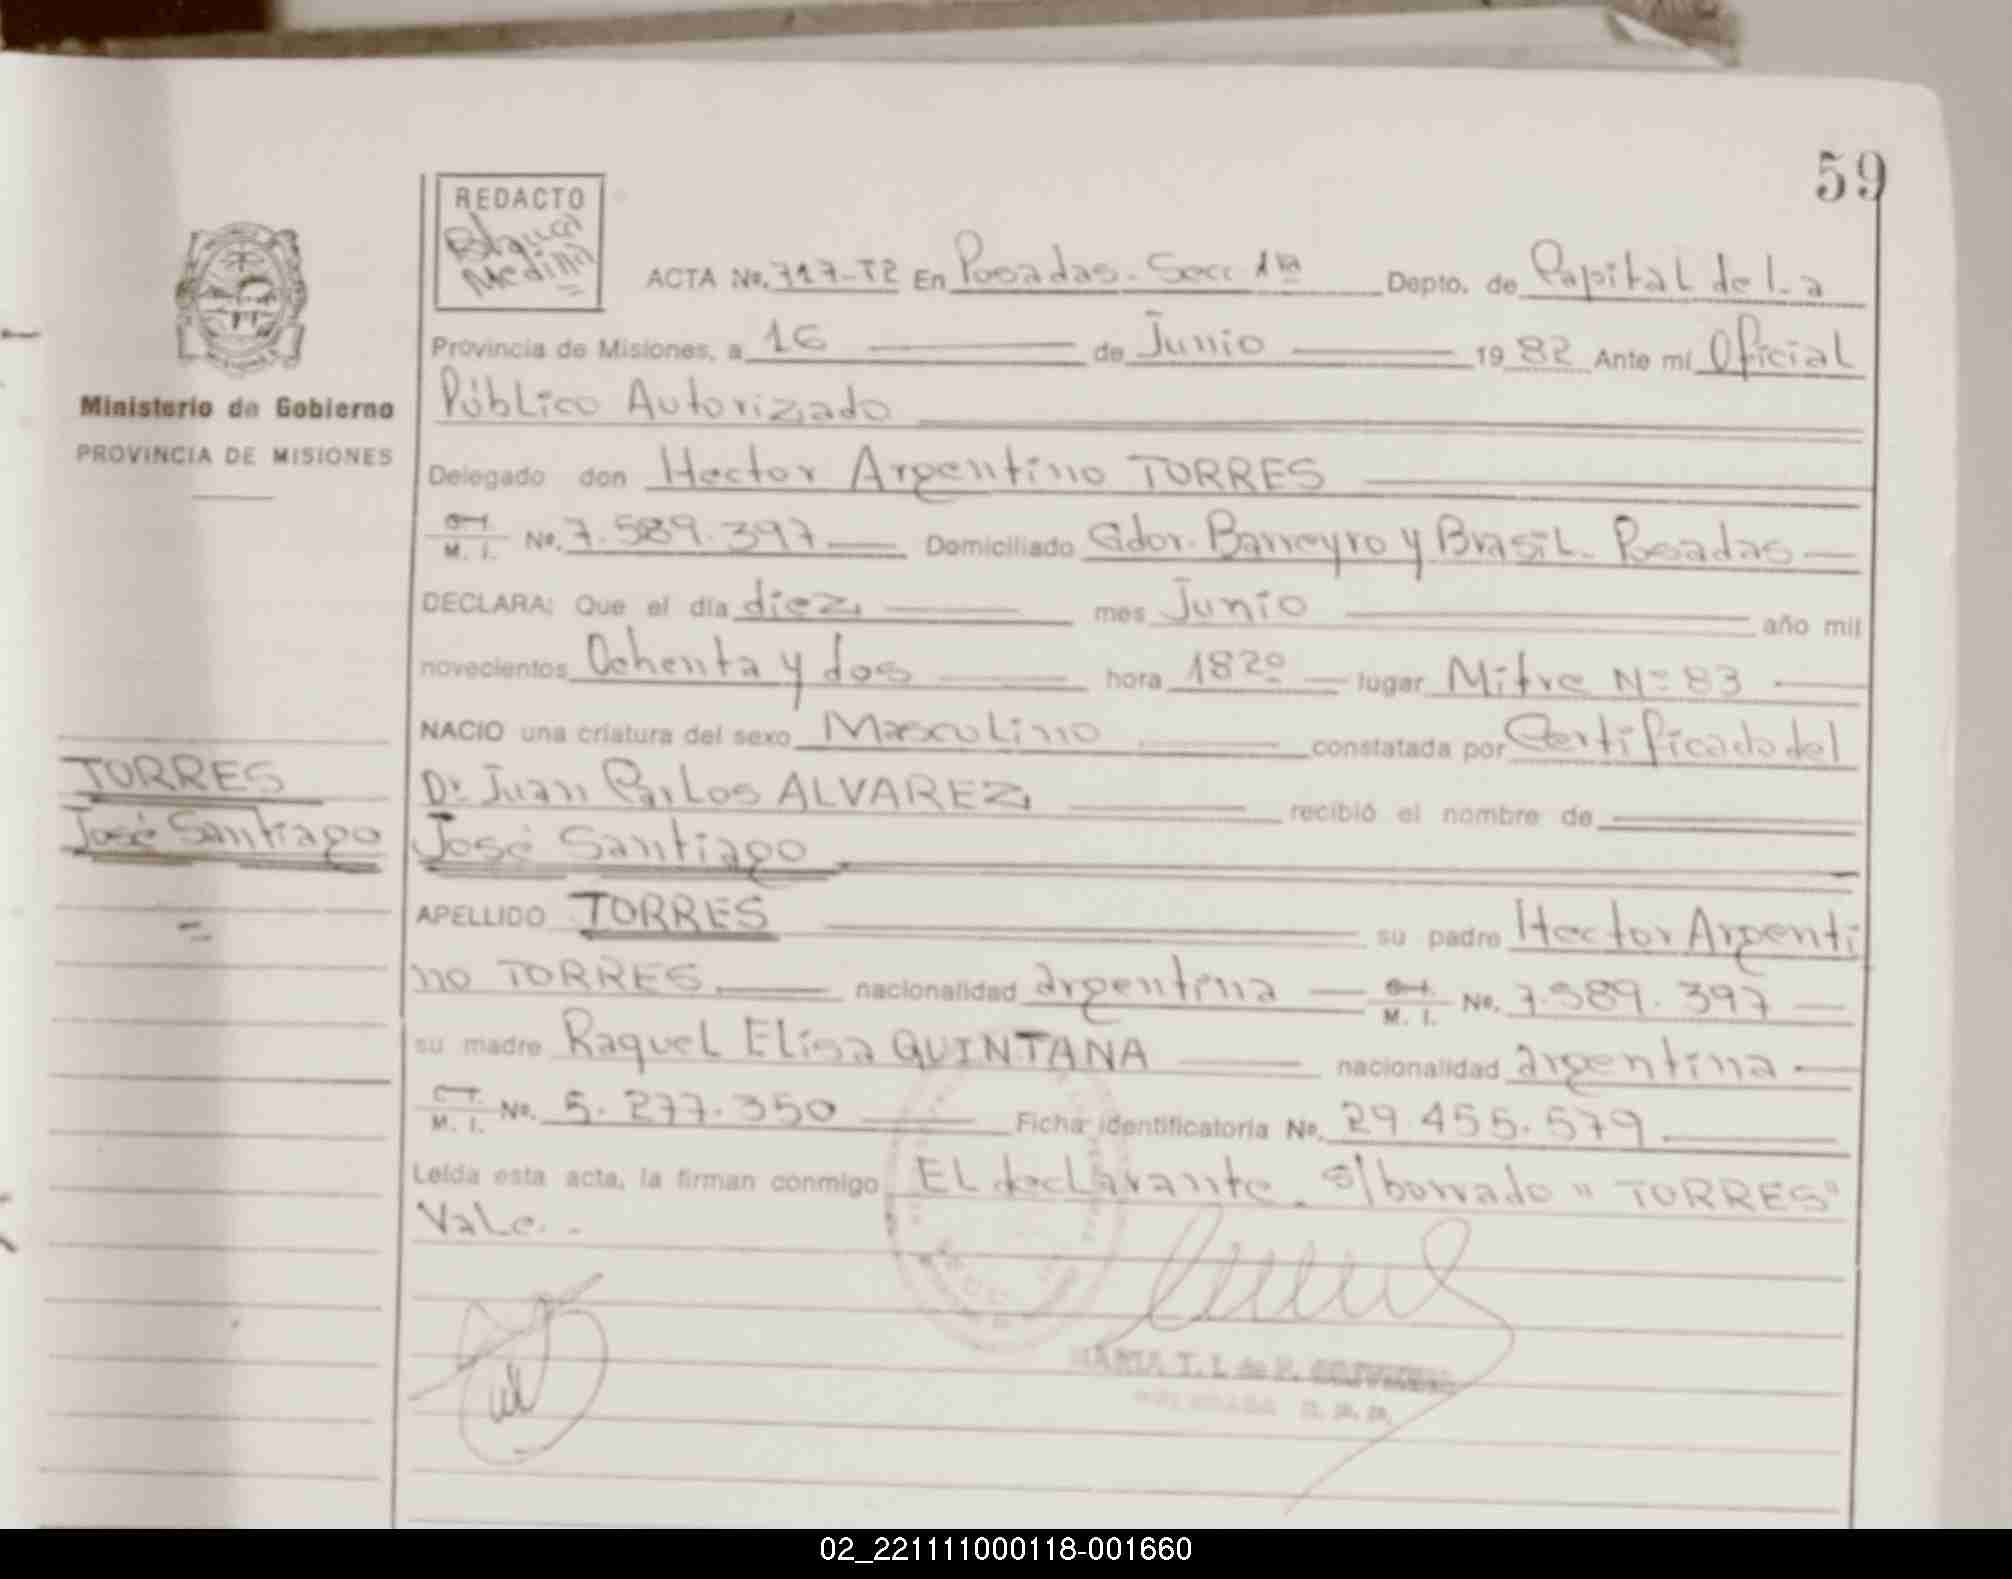 59
REDACTO
Blanca
Medina
ACTA No. 717-T2 En Posadas - Secc 1ra Depto. de Capital de La
Provincia de Misiones, a 16 de Junio 1982 Ante mí Oficial
Público Autorizado
Ministerio de Gobierno
PROVINCIA DE MISIONES
Delegado don Hector Argentino TORRES
M. I. No. 7.589.397 Domiciliado Gdor. Barreyro y Brasil - Posadas
DECLARA: Que el día diez mes Junio año mil
novecientos Ochenta y dos hora 18 20 lugar Mitre Nº 83
NACIO una criatura del sexo Masculino constatada por Certificado del
Dr. Juan Carlos ALVAREZ recibió el nombre de
José Santiago
TORRES
José Santiago
APELLIDO TORRES su padre Hector Argenti
no TORRES nacionalidad argentina M. I. No. 7.589.397
su madre Raquel Elisa QUINTANA nacionalidad argentina
M. I. No. 5.277.350 Ficha identificatoria No. 29.455.579
Leída esta acta, la firman conmigo EL declarante. s/borrado "TORRES"
Vale.-
MARIA T. I. de P.
02_221111000118-001660